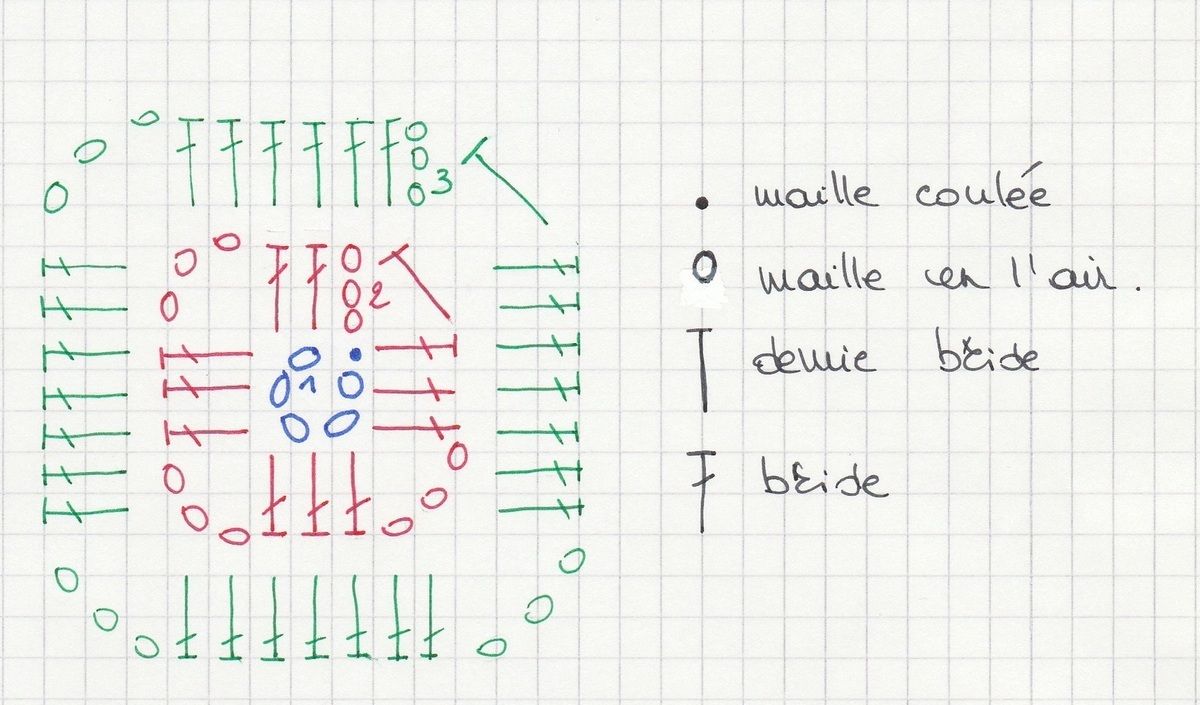 3
2
1
maille coulée
maille en l'air.
demie bride
bride